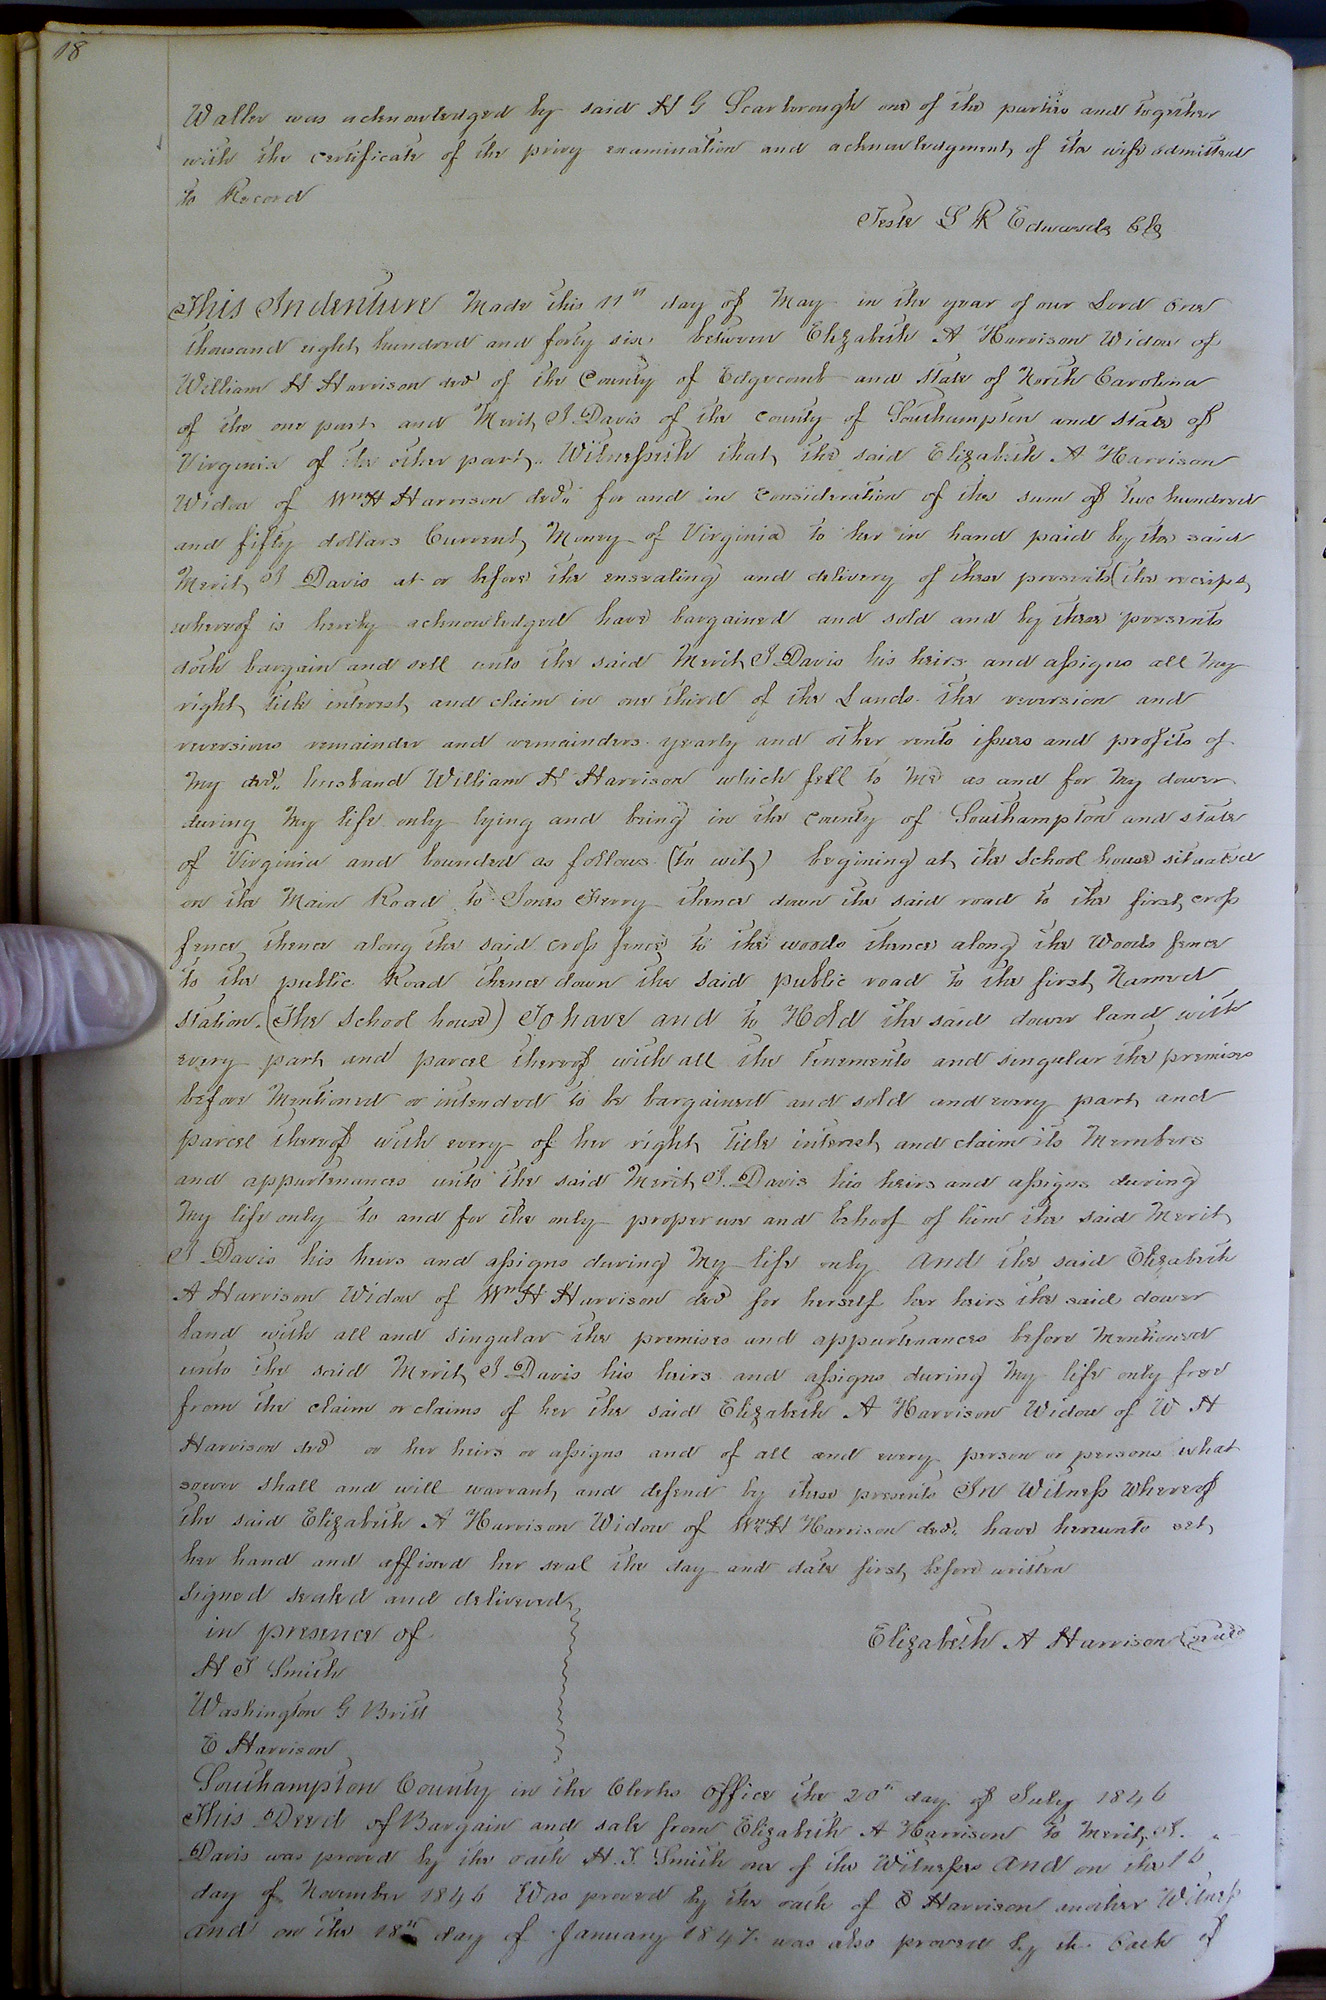 18
Waller was acknowledged by said H G Scarborough one of the parties and together
with the certificate of the privy examination and acknowledgment of the wife admitted
to Record
Teste L R Edwards Clk
This Indenture Made this 11th day of May in the year of our Lord One
thousand eight hundred and forty six between Elizabeth A Harrison Widow of
William H Harrison decd of the County of Edgecomb and State of North Carolina
of the one part and Merit J Davis of the county of Southampton and State of
Virginia of the other part. Witnesseth that the said Elizabeth A Harrison
Widow of Wm H Harrison decd. for and in consideration of the sum of two hundred
and fifty dollars Current Money of Virginia to her in hand paid by the said
Merit J Davis at or before the ensealing and delivery of these presents (the receipt
whereof is hereby acknowledged have bargained and sold and by these presents
doth bargain and sell unto the said Merit J Davis his heirs and assigns all My
right title interest and claim in one third of the Lands. the reversion and
reversions remainder and remainders yearly and other rents issues and profits of
My decd. husband William H Harrison which fell to Me as and for My dower
during My life only lying and being in the county of Southampton and state
of Virginia and bounded as follows (to wit) begining at the School house situated
on the Main Road to Jones Ferry thence down the said road to the first cross
fence thence along the said cross fence to the woods thence along the Woods fence
to the public Road thence down the said public road to the first Named
station. (The School house) To have and to Hold the said dower land with
every part and parcel thereof with all the tenements and singular the premises
before Mentioned or intended to be bargained and sold and every part and
parcel thereof with every of her right title interest and claim its Members
and appurtenances unto the said Merit J. Davis his heirs and assigns during
My life only to and for the only proper use and behoof of him the said Merit
J Davis his heirs and assigns during My life only And the said Elizabeth
A Harrison Widow of Wm H Harrison decd for herself her heirs the said dower
land with all and singular the premises and appurtenances before Mentioned
unto the said Merit J Davis his heirs and assigns during My life only free
from the claim or claims of her the said Elizabeth A Harrison Widow of W H
Harrison decd or her heirs or assigns and of all and every person or persons what
soever shall and will warrant and defend by these presents In Witness Whereof
the said Elizabeth A Harrison Widow of Wm H Harrison decd. have hereunto set
her hand and affixed her seal the day and date first before written
Signed sealed and delivered
in presence of
Elizabeth A Harrison (seal)
H J Smith
Washington G Britt
E Harrison
Southampton County in the Clerks Office the 20th day of July 1846
This Deed of Bargain and sale from Elizabeth A Harrison to Merit J.
Davis was proved by the oath H. J. Smith one of the Witnesses And on the 16
day of November 1846 Was proved by the oath of E Harrison another Witness
And on the 18th day of January 1847 was also proved by the Oath of